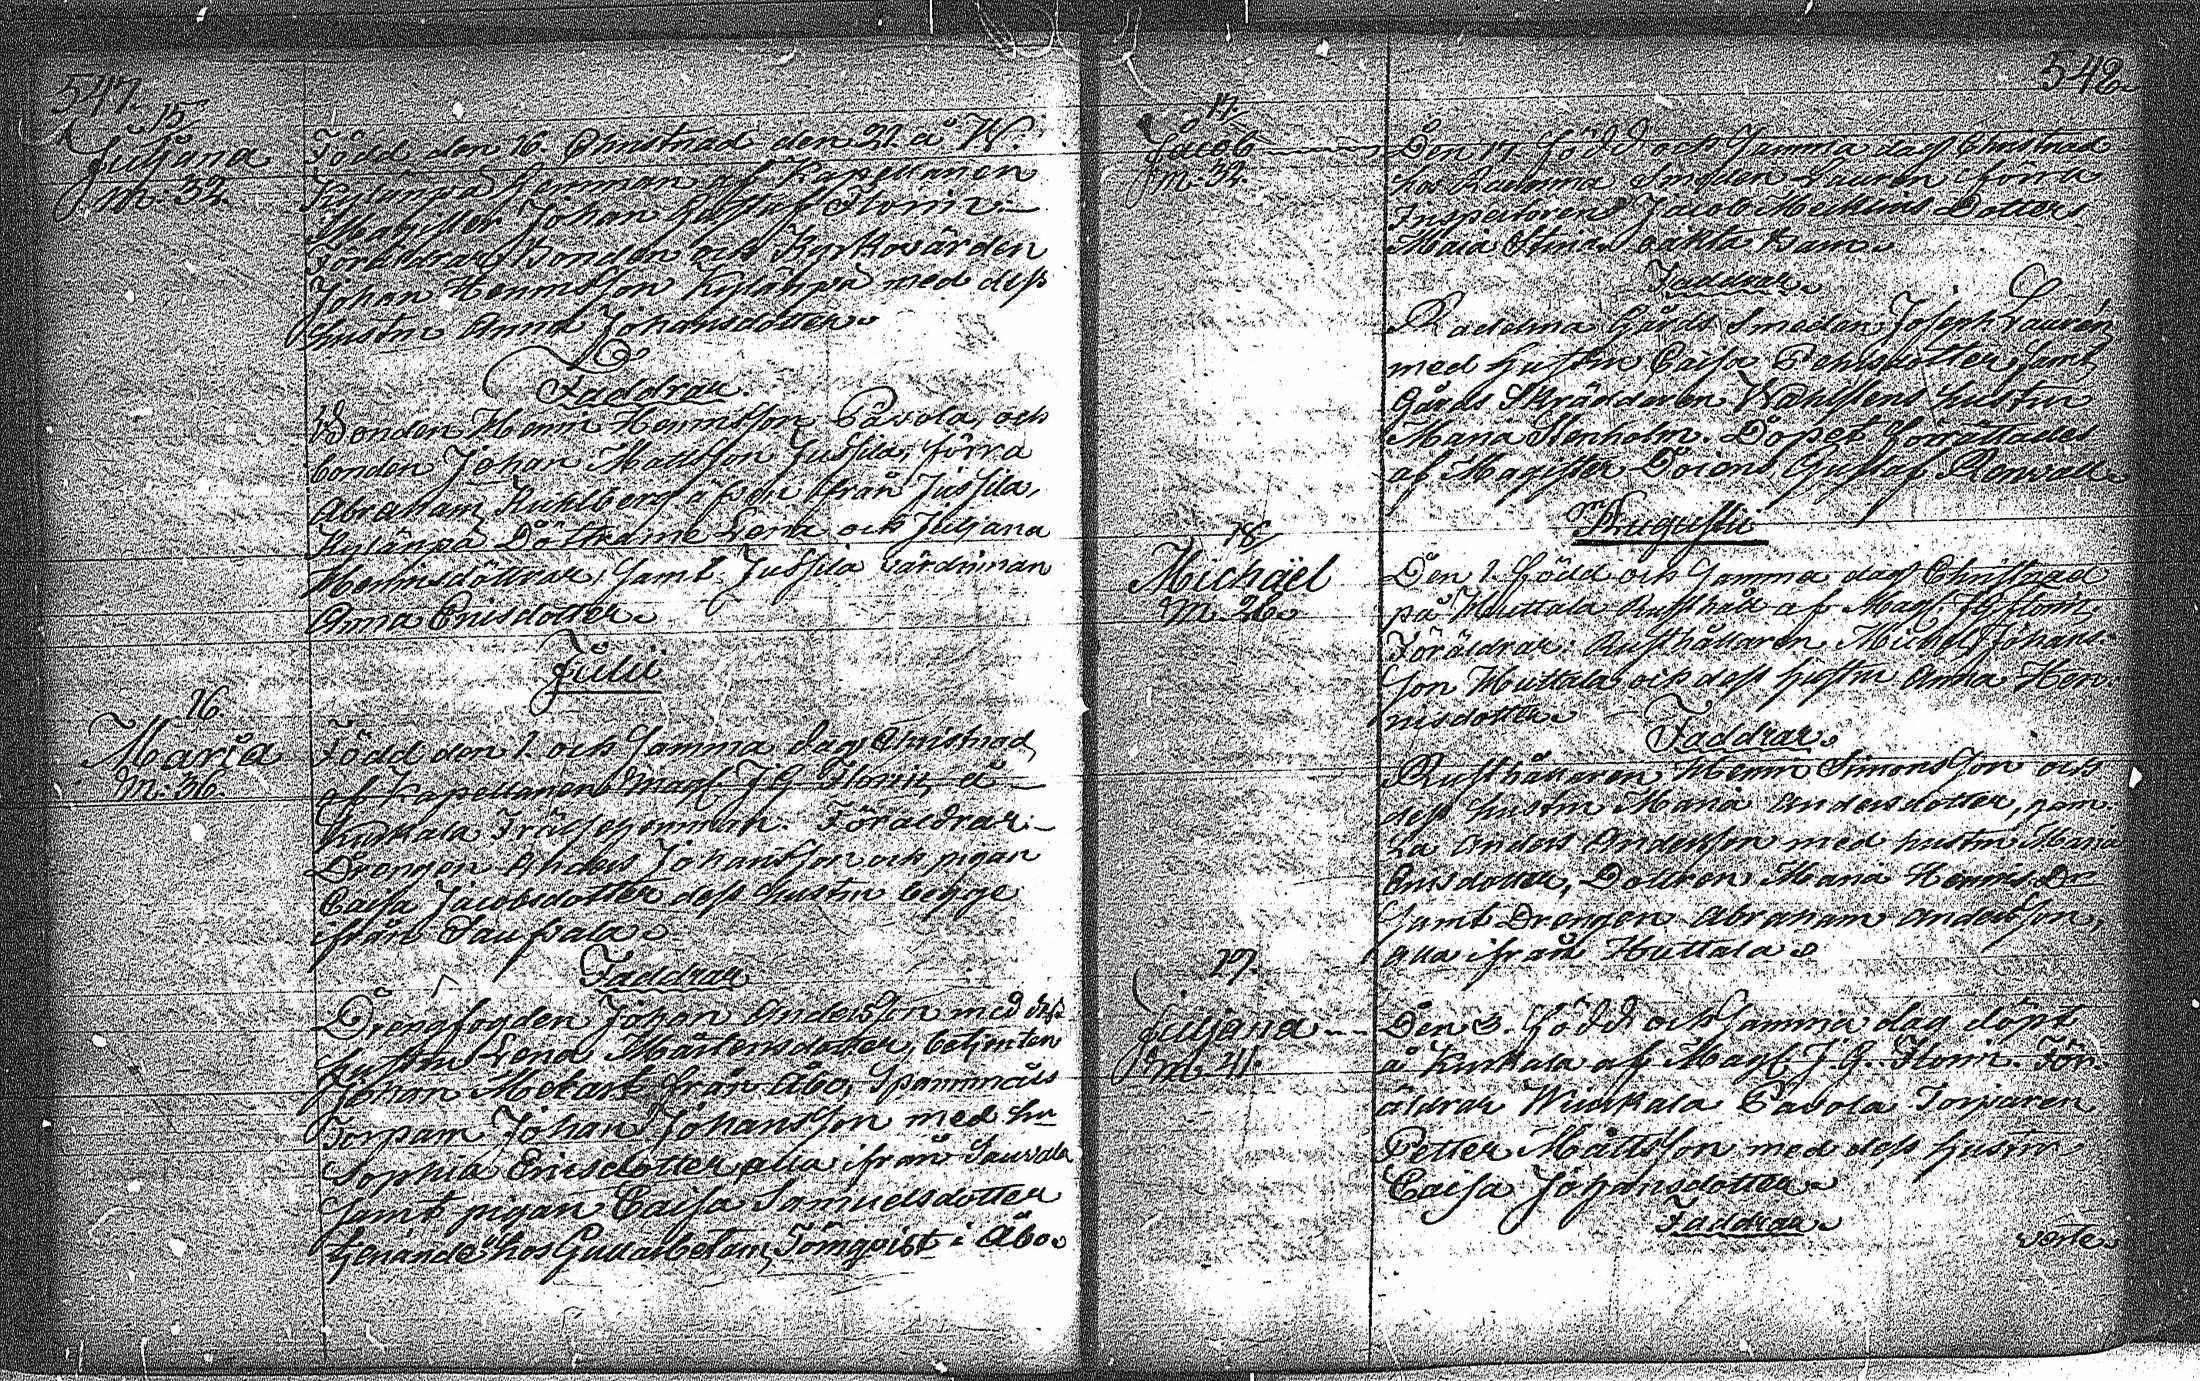 547.
15.
Juljana
m. 32.
Född den 16. Christnad den 21. å W.
Kylänpä hemman af Kapellanen
Magister Johan Gustaf Florin.
Föräldrar Bonden och Kyrkovärden
Johan Henrnsson Kylänpä med dess
hustru Anna Johansdotter.
Faddrar.
Bonden Henric Henrnsson Pavola, och
bonden Johan Mattsson Jussila, förra
Abraham äfven ifrån Jussila,
Kylänpä Döttrarne Lena och Juljana
Henrnsdöttrar, samt Jussila värdinnan
Anna Ericsdotter.
Julii
16.
Maria
m. 36.
Född den 1. och samma dag Christnad
af Kapellanen Mag. J G Florin, å
Kurkala Föräldrar.
Drengen Anders Johansson och pigan
Caisa Jacobsdotter dess hustru begge
ifrån Saupala.
Faddrar
Drengfogden Johan Andersson med dess
hustru Lena Mårtensdotter, betjenten
Johan från Åbo, Spannmåls
Torparn Johan Johansson med hu
Sophia Ericsdotter alla ifrån
samt pigan Caisa Samuelsdotter
tjenande hos Gullarbetarn Törnqvist i Åbo.
548.
17.
Jacob
m. 32.
Den 17. född och samma dag Christnad
hos Radelma Smeden Lauren, förra
Inspectorens Jacob Mechlins Dotters
Maia Stinas oäkta barn.
Faddrar.
Radelma Gårds Smeden Joseph Laurén
med hustru Caisa samt
Gårds Skräddaren Wahlstens hustru
Maria Stenholm. Döpet förrättades
af Magister Gustaf Renvall.
Augusti
18.
Michäel
m. 26.
Den 1. född och samma dag Christnad
på Huttala Rusthåld af Mag. J G Florin,
Föräldrar: Rusthållaren Michel Johans-
son Huttala och dess hustru Anna Hen-
ricsdotter.
Faddrar.
Rusthållaren Henric Simonsson och
dess hustru Maria Andersdotter, gam-
la Anders Andersson med hustru Maria
Ericsdotter, Dottren Maria Henrics Dr
samt Drengen Abraham Andersson,
alla ifrån Huttala.
19.
Juljana
m. 41.
Den 3. född och samma dag döpt
å Kurkala af Mag. J. G. Florin. För-
äldrar Pavola Torparen
Petter Mattsson med dess hustru
Caisa Johansdotter.
Faddrar.
verte.